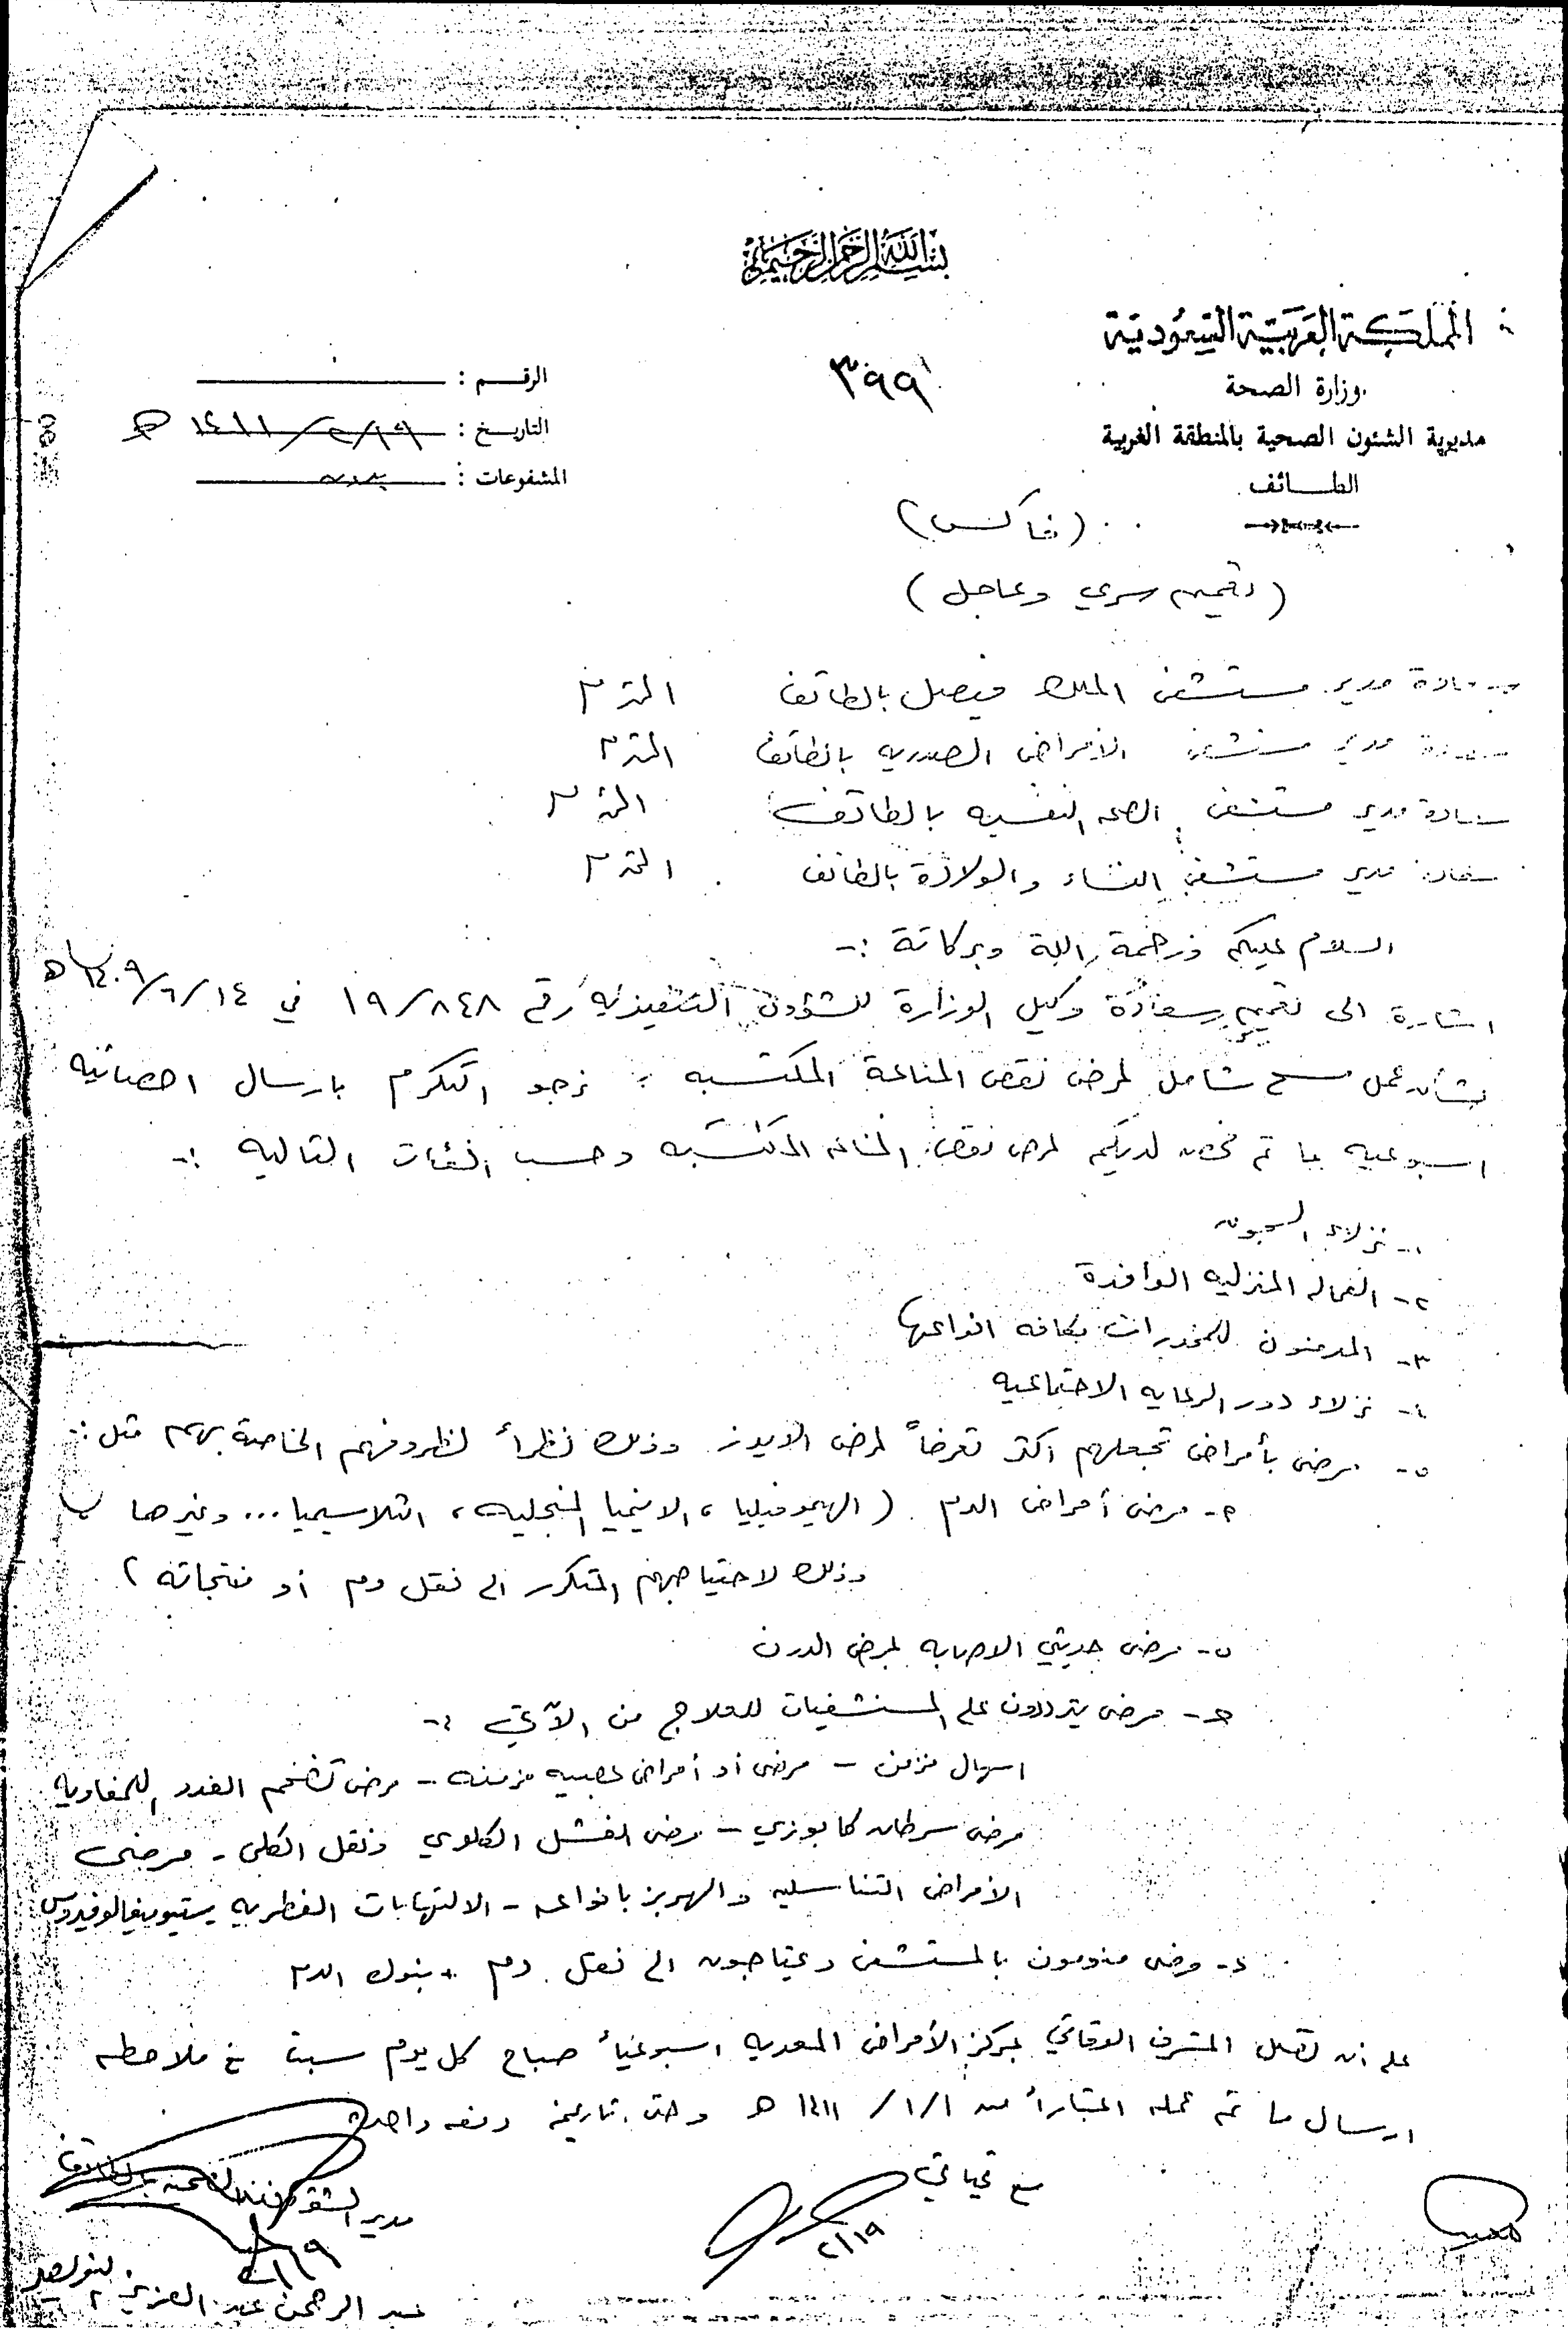 بسم الله الرحمن الرحيم
المملكة العربية السعودية
وزارة الصحة
مديرية الشئون الصحية بالمنطقة الغربية
الطائف
٣٩٩
الرقم :
التاريخ : ١٤١١/٢/١٩ هـ
المشفوعات : بدون
(فاكس)
(تعميم سري وعاجل)
سعادة مدير مستشفى الملك فيصل بالطائف المحترم
سعادة مدير مستشفى الأمراض الصدريه بالطائف المحترم
سعادة مدير مستشفى الصحه النفسيه بالطائف المحترم
سعادة مدير مستشفى النساء والولادة بالطائف المحترم
السلام عليكم ورحمة الله وبركاتة :-
اشارة الى تعميم سعادة وكيل الوزارة للشؤون التنفيذيه رقم ١٩/٨٤٨ في ١٤٠٩/٦/١٤ هـ
بشأن عمل مسح شامل لمرض نقص المناعة المكتسبه : نرجو التكرم بارسال احصائيه
اسبوعيه بما تم فحصه لديكم لمرض نقص المناعه المكتسبه وحسب الفئات التاليه :-
١- نزلاء السجون
٢- العماله المنزليه الوافدة
٣- المدمنون للمخدرات بكافه انواعها
٤- نزلاء دور الرعايه الاجتماعيه
٥- مرضى بأمراض تجعلهم اكثر تعرضاً لمرض الايدز وذلك نظراً لظروفهم الخاصة بهم مثل :-
م- مرضى أمراض الدم (الهيموفيليا ، الانيميا المنجليه ، الثلاسيميا ... وغيرها
وذلك لاحتياجهم المتكرر الى نقل دم او منتجاته )
ں- مرضى حديثي الاصابه بمرض الدرن
حـ- مرضى يترددون على المستشفيات للعلاج من الآتي :-
اسهال مزمن - مرض او أمراض عصبيه مزمنه - مرض تضخم الغدد اللمفاويه
مرض سرطان كابوزي - مرضى الفشل الكلوي ونقل الكلى - مرضى
الأمراض التناسليه والهربز بانواعه - الالتهابات الفطريه
د- مرضى منومون بالمستشفى ويحتاجون الى نقل دم + بنوك الدم
على ان تصل المشرف الوقائي بمركز الأمراض المعديه اسبوعياً صباح كل يوم سبت مع ملاحظه
ارسال ما تم عمله اعتباراً من ١/١/ ١٤١١ هـ وحتى تاريخه دفعه واحدة
مع تحياتي
مدير الشؤون الصحيه بالطائف
٢/١٩
٢/١٩
عبد الرحمن عبد العزيز